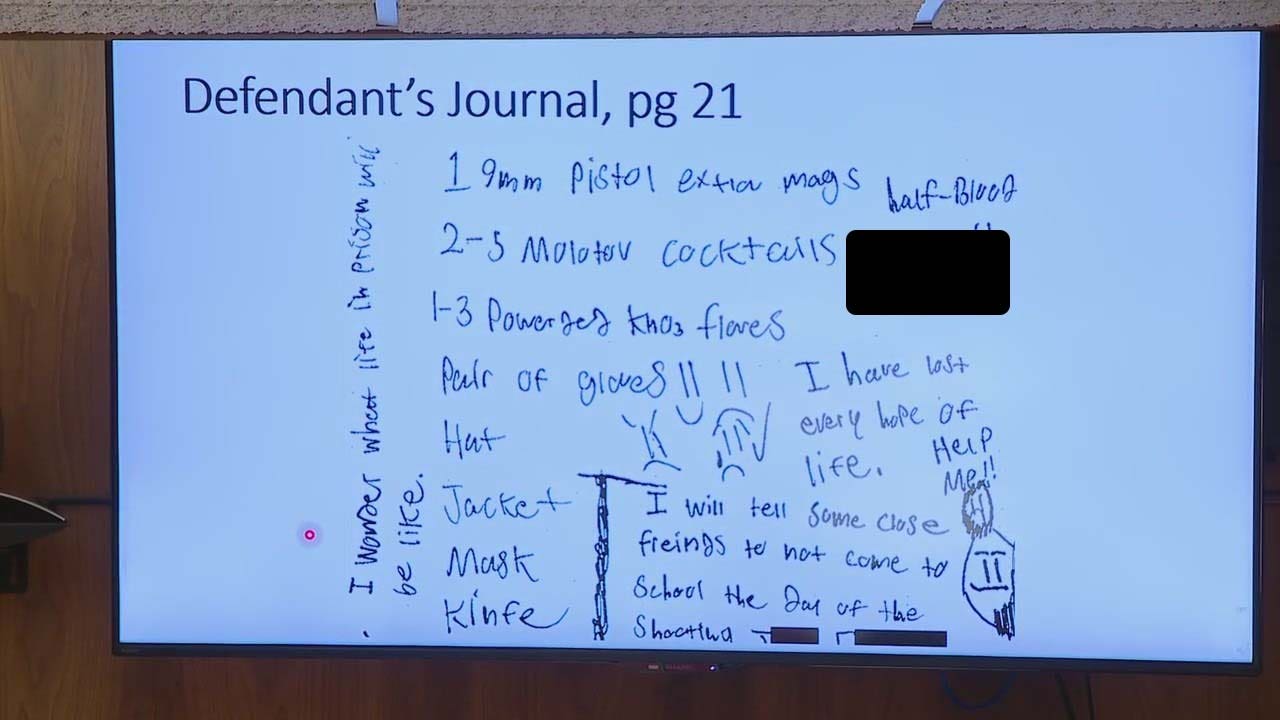 Defendant's Journal, pg 21
I wonder what life in prison will
be like.
1 9mm Pistol extra mags
half-Blood
2-5 Molotov cocktails
1-3 Powerded kno3 flares
Pair of gloves
I have lost
every hope of
life.
HELP
Me!!
Hat
Jacket
Mask
Kinfe
I will tell some close
freings to not come to
School the Day of the
Shooting